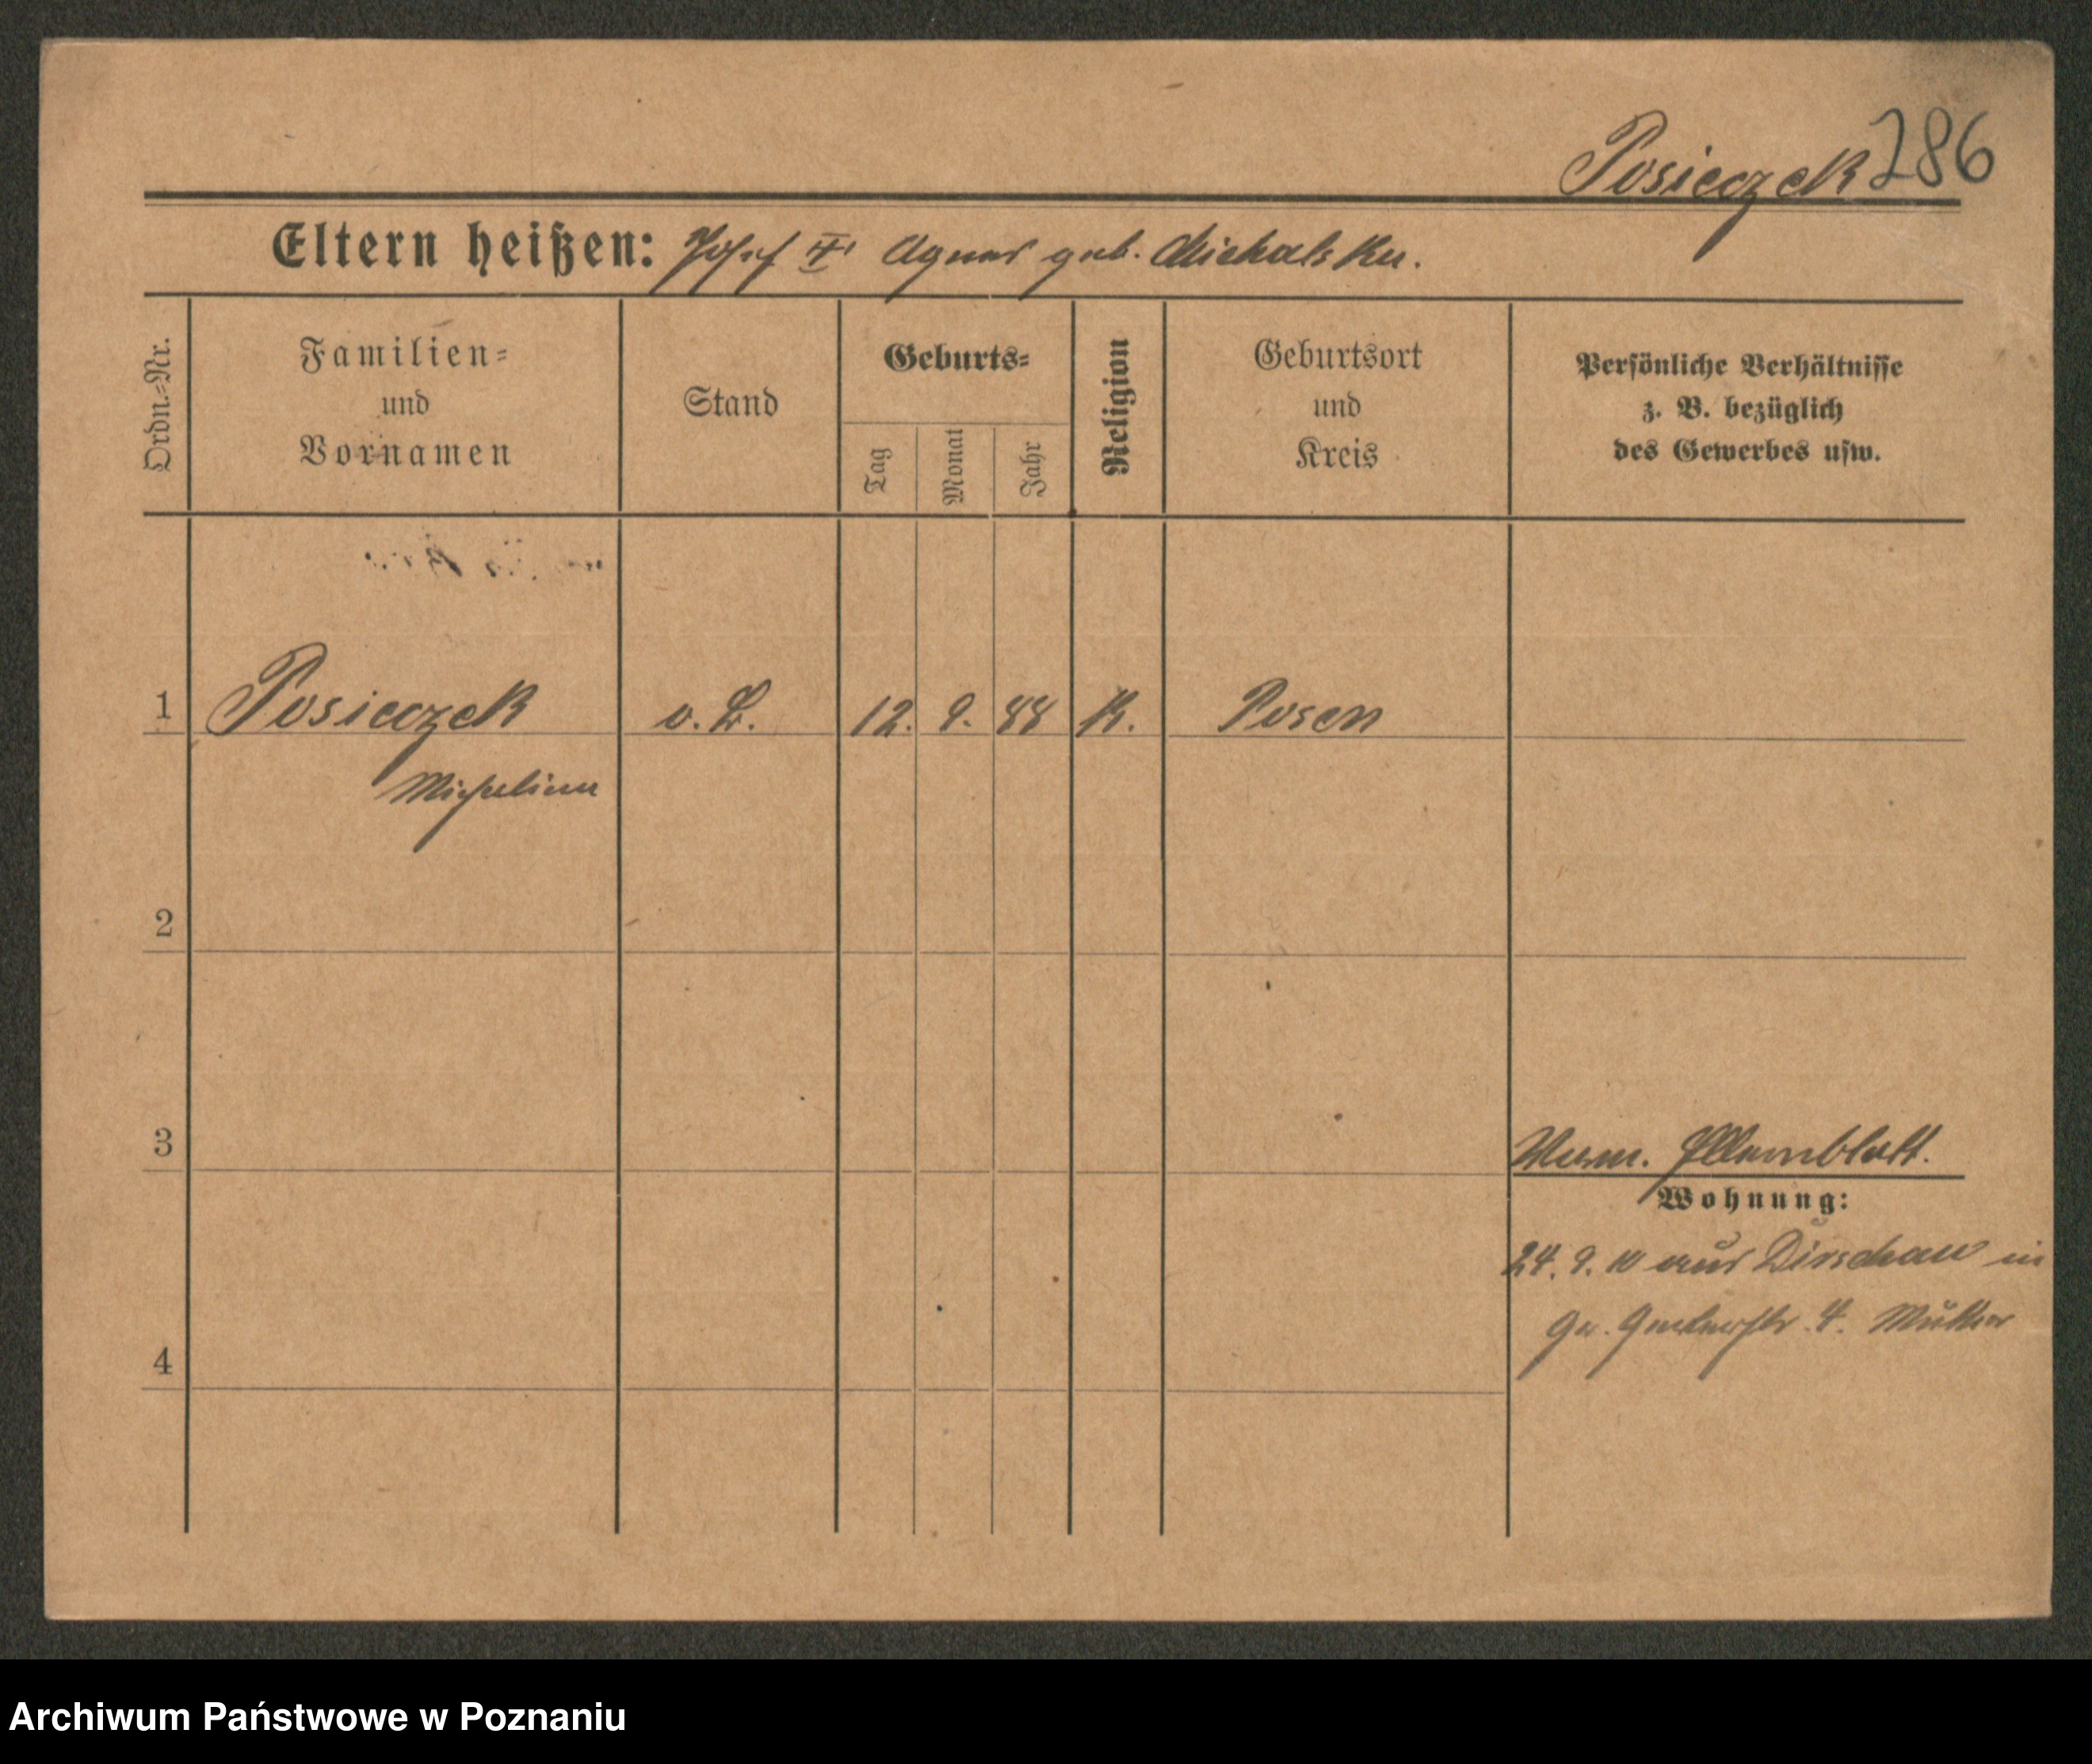 Posieczek 286
Eltern heißen: Josef u. Agnes geb. Michalska.
Ordn.-Nr.
Familien-
und
Vornamen
Stand
Geburts-
Tag
Monat
Jahr
Religion
Geburtsort
und
Kreis
Persönliche Verhältnisse
z. B. bezüglich
des Gewerbes usw.
1 Posieczek o. B. 12. 9. 88 K. Posen
Michalina
2
3
4
Wohnung:
24. 9. 10 aus Dirschau in
Gr. Gerberstr. 4. Mutter
Archiwum Państwowe w Poznaniu